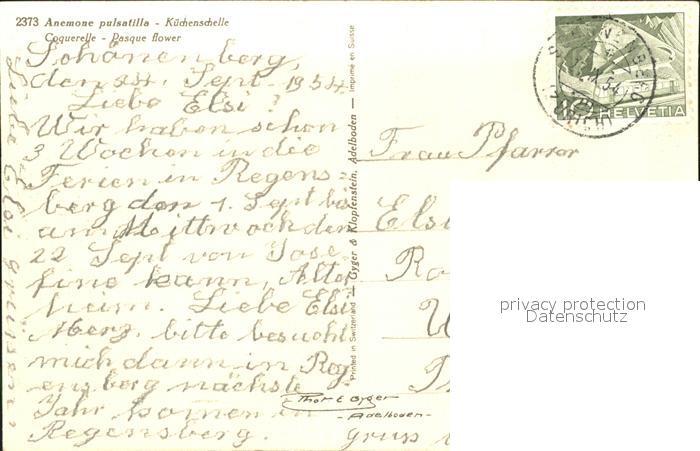 2373 Anemone pulsatilla - Küchenschelle
Coquerelle - Pasque flower
Schönenberg,
den 24. Sept. 1954.
Liebe Elsi!
Wir haben schon
3 Wochen in die
Ferien in Regens=
berg den 1. Sept bis
am Mittwoch den
22 Sept von Jose
fine kann, Alter
heim. Liebe Elsi
Merz, bitte besuch
mich dann in Reg
ensberg nächste
Jahr kommen in
Regensberg.
Printed in Switzerland — Gyger & Klopfenstein, Adelboden — Imprimé en Suisse
Phot E Gyger
- Adelboden -
HELVETIA
Frau Pfarrer
Elsi
Gruss
privacy protection
Datenschutz